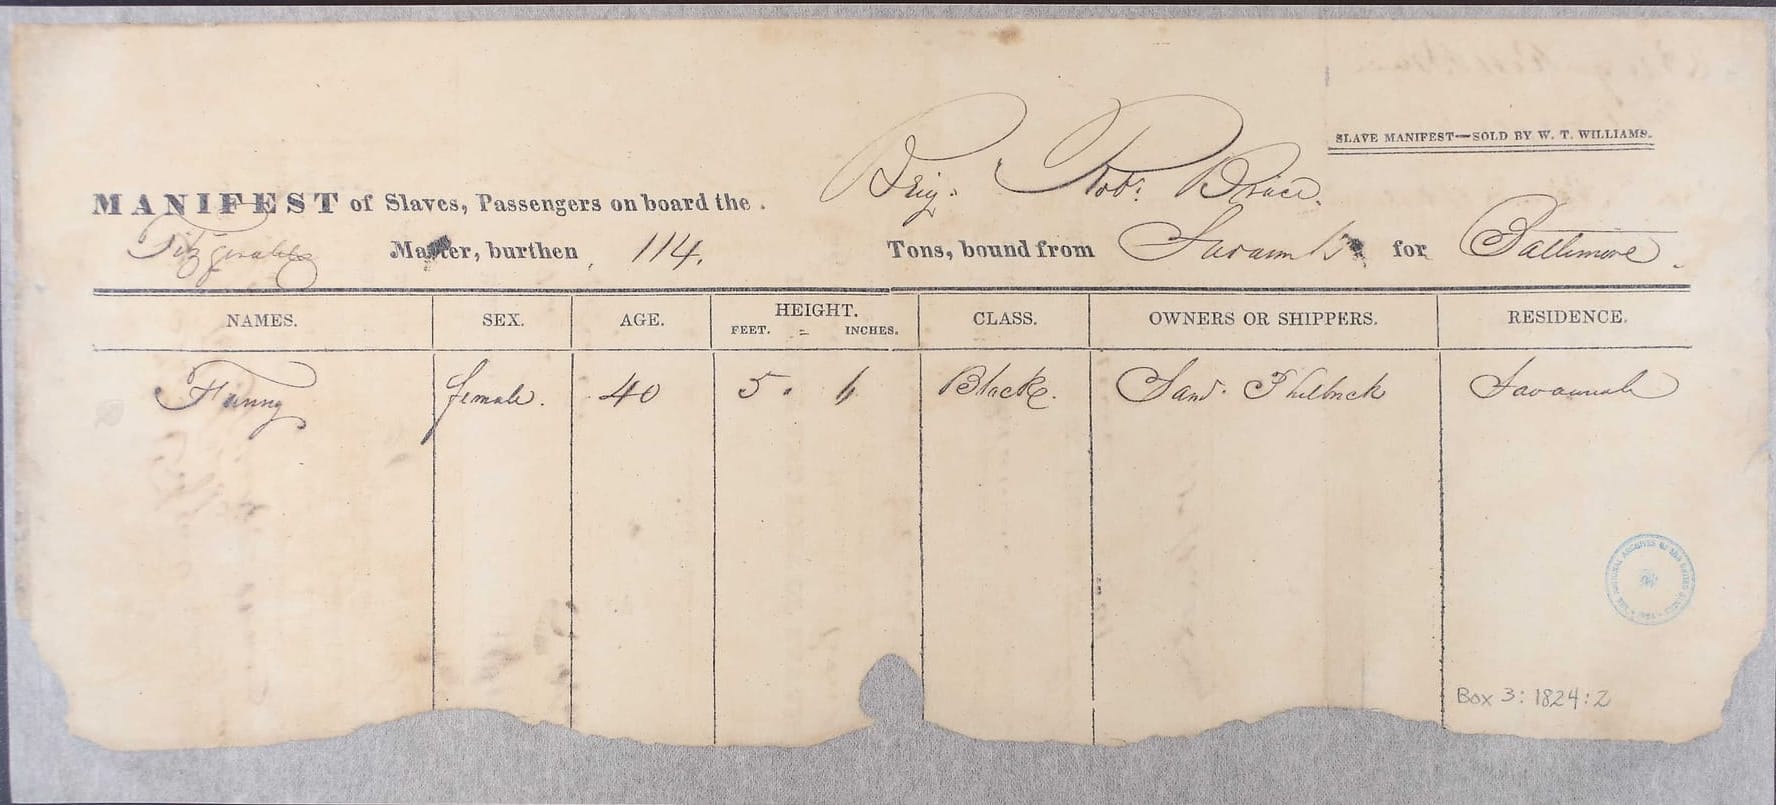 SLAVE MANIFEST—SOLD BY W. T. WILLIAMS.
MANIFEST of Slaves, Passengers on board the . Brig. Robt. Bruce.
Fitzgerald Master, burthen 114. Tons, bound from Savannah for Baltimore.
NAMES. SEX. AGE. HEIGHT. CLASS. OWNERS OR SHIPPERS. RESIDENCE.
FEET. = INCHES.
Fanny female. 40 5 . 1 Black. Saml. Philbrick Savannah
THE NATIONAL ARCHIVES OF THE UNITED STATES
Box 3: 1824:2